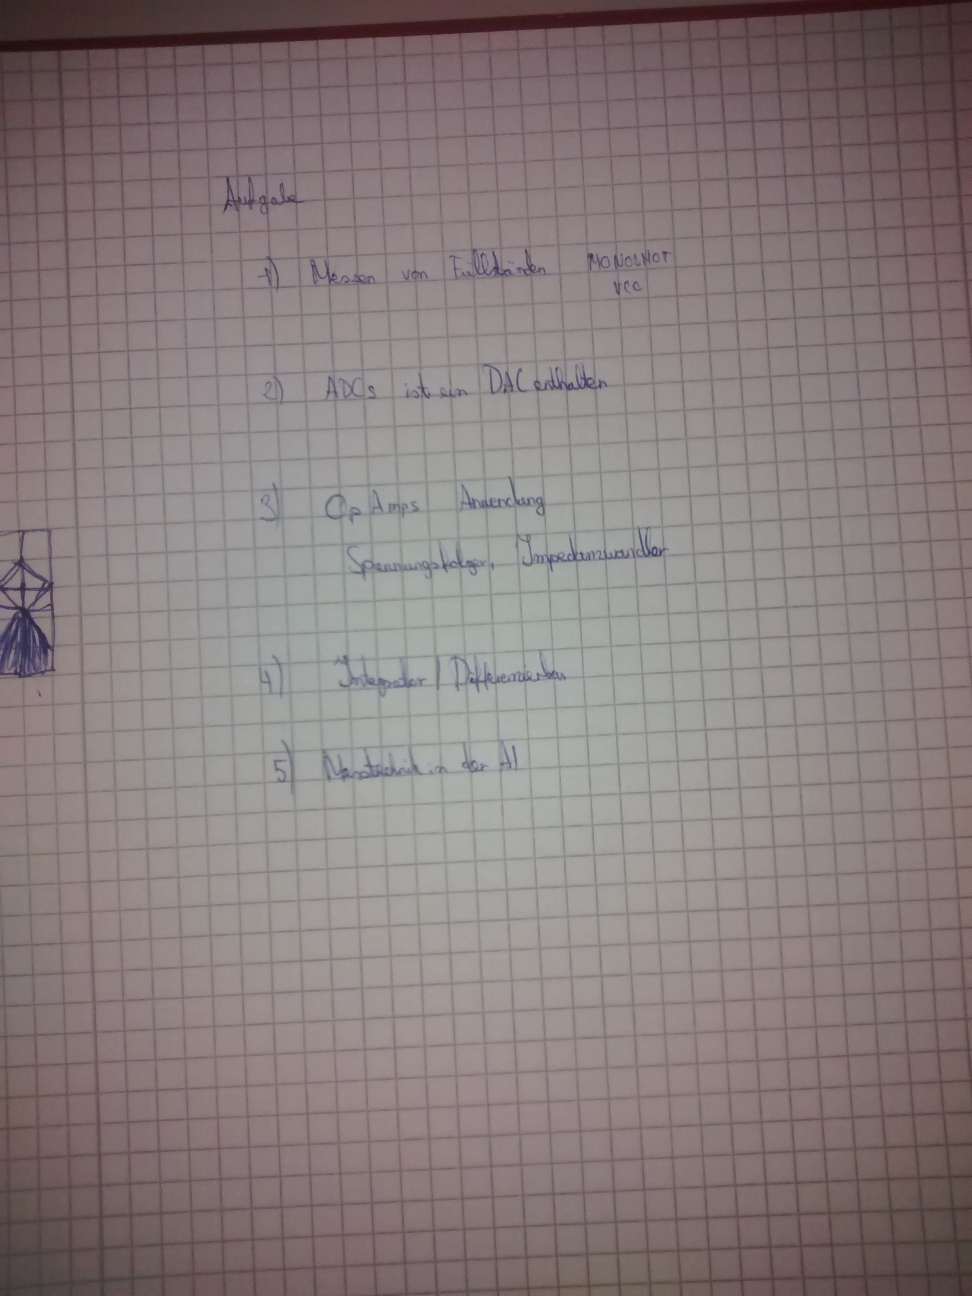 Aufgabe
1) Messen von Füllständen MONOSHOT
VCC
2) ADCs ist ein DAC enthalten
3) Op Amps Anwendung
Spannungsfolger, Impedanzwandler
4) Integrator / Differenzierer
5) in der AI